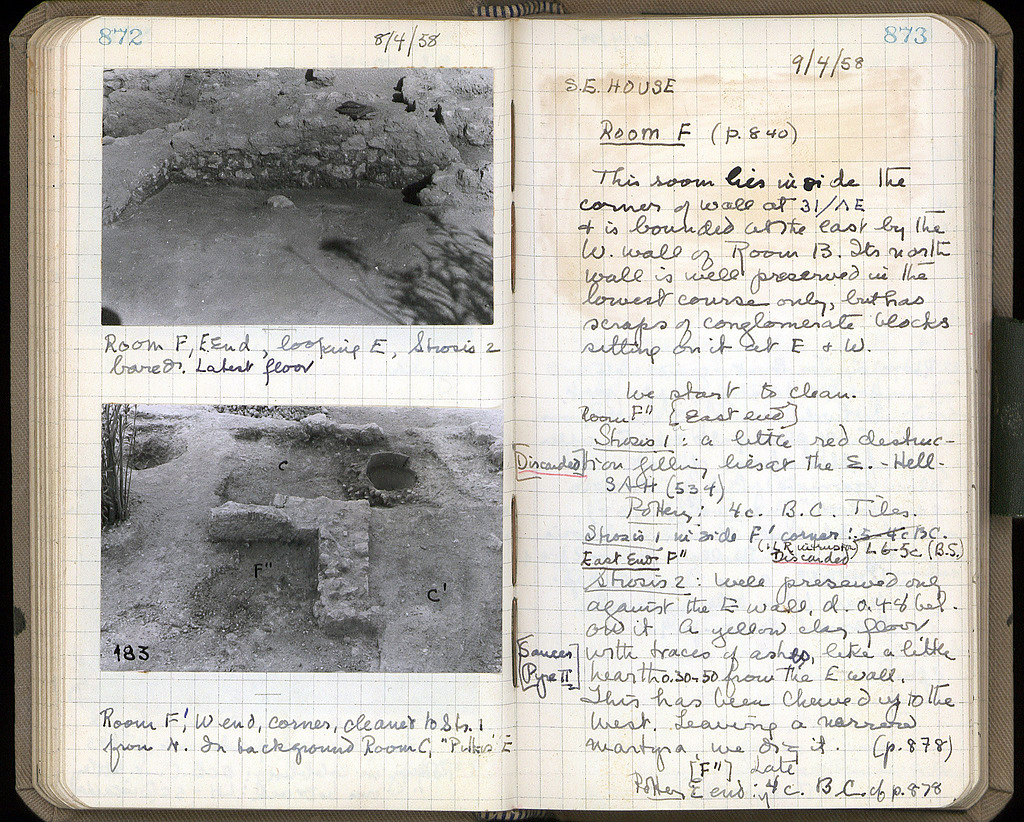 872
8/4/58
Room F, E End, looking E, Strosis 2
bared. Latest floor
C
F"
C'
183
Room F', W end, corner, cleaned to Str. 1
from N. In background Room C, "Pithos" E
873
9/4/58
S.E. HOUSE
Room F (p. 840)
This room lies inside the
corner of wall at 31/ΛE
+ is bounded at the east by the
W. wall of Room B. Its north
wall is well preserved in the
lowest course only, but has
scraps of conglomerate blocks
sitting on it at E + W.
We start to clean.
Room F" [East end]
Strosis 1: a little red destruc-
Discarded
tion filling lies at the E. - Hell-
SAH (534)
Pottery: 4c. B.C. Tiles.
Strosis 1 inside F' corner: 5-4c BC.
(1 LR intrusion) L 6-5c (B.S.)
East End F" Discarded
Strosis 2: well preserved only
against the E wall, d. 0.48 bel-
ow it. A yellow clay floor
Saucer
Pyre II
with traces of ash, like a little
hearth 0.30-50 from the E wall.
This has been chewed up to the
West. Leaving a narrow
martyra, we dig it. (p. 878)
[F"] Late
Pottery E end: 4c. B.C. cf p. 878